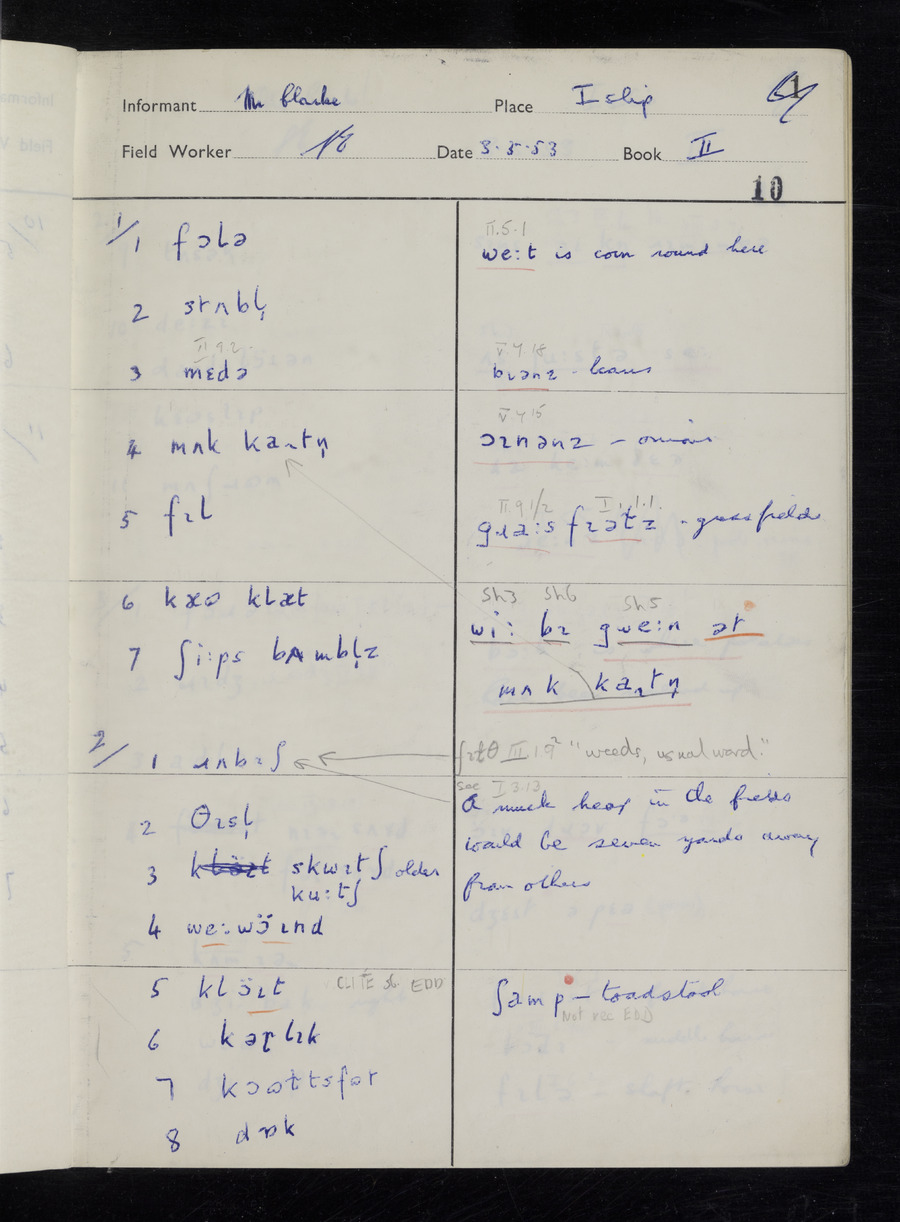 Informant Mr Clarke Place Islip
Field Worker Date 3.5.53 Book II
10
1/1 fɔlə
2 stʌbl̩
II.9.2
3 mɛdə
4 mʌk kaɻtn̩
5 fɪl
6 kæʊ klæt
7 ʃi:ps bʌmbl̩z
2/ 1 ɹʌbɪʃ
2 θɪsl̩
3 skwɪtʃ older
ku:tʃ
4 we:wöɪnd
5 klöɪt CLITE sb EDD
6 kəɽlɪk
7 kɔʊttsfʊt
8 dɒk
II.5.1
we:t is corn round here
V.7.18
bɪənz - beans
V.7.15
ɔɪnənz - onions
II.9.1/2 I.1.1
gɹa:s fɪətz - grassfields
Sh3 Sh6 Sh5
wi: bɪ gwe:n ət
mʌk kaɻtn̩
fɪtθ III.1.9² "weeds, usual word."
see I.3.13
A muck heap in the fields
would be seven yards away
from others
ʃamp - toadstool
Not rec EDD